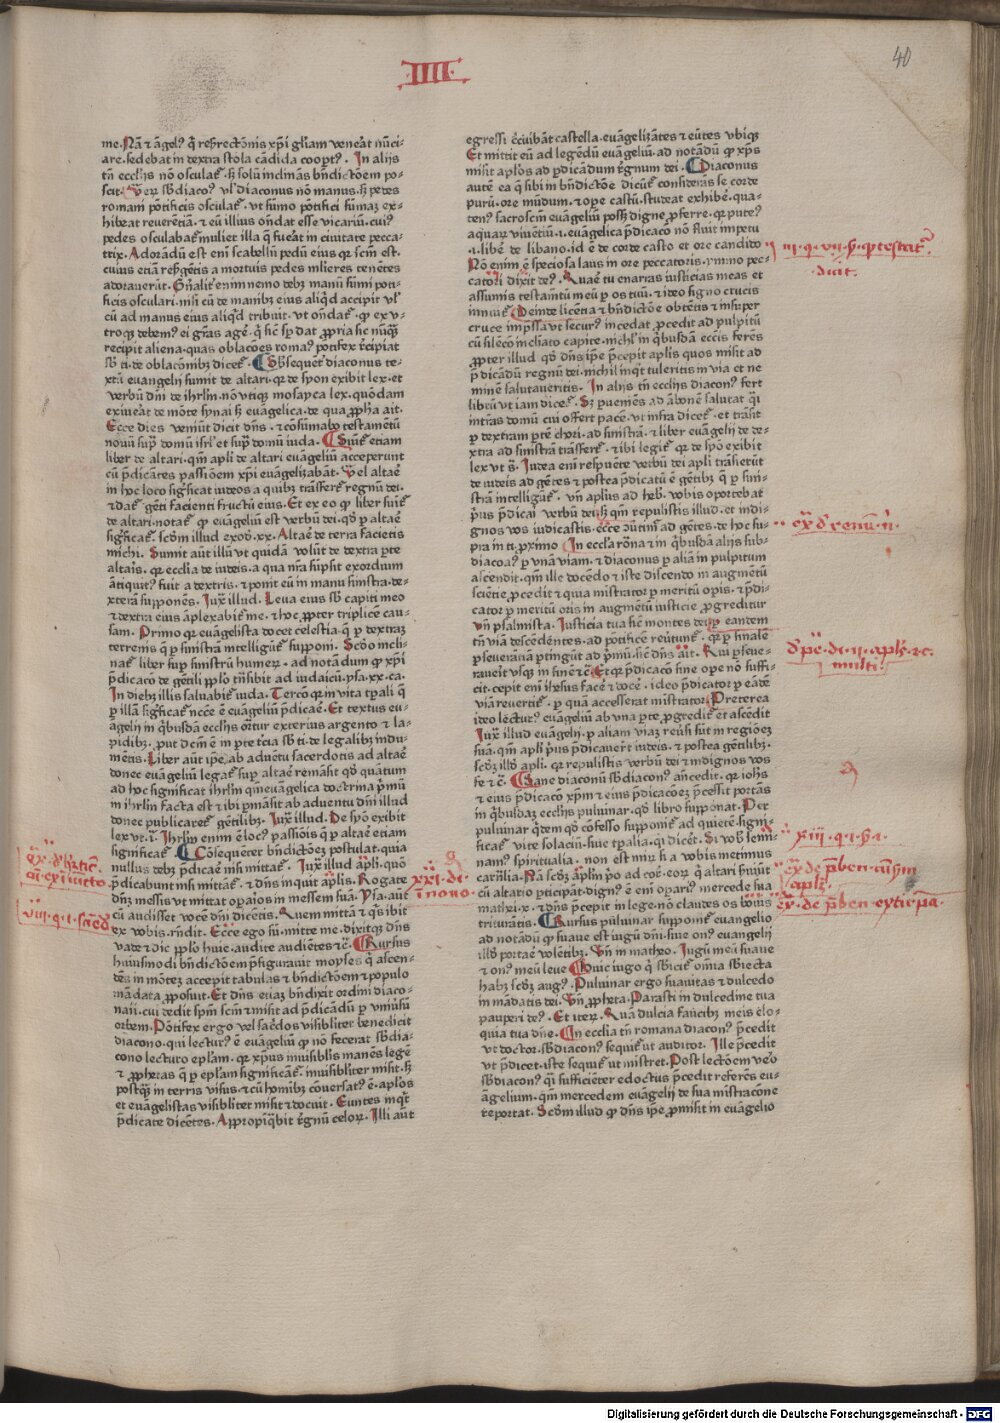 IIII
40
me. Nā ⁊ āgelꝰ q̇ resrectōnis xp̄i gl̄iam veneāt nūci-
are. sedebat in dextra stola cādida cooptꝰ. In alijs
tn̄ eccl̄ijs nō osculat᷑. sꝫ solū inclināns bn̄dictōem po-
scit. Ver sb̄diacoꝰ vl̓ diaconus nō manus. sꝫ pedes
romani pōtificis osculat᷑. vt sūmo pōtifici sūmaꝫ ex-
hibeat reuerētiā. ⁊ eū illius on̄dat esse vicariū. cuiꝰ
pedes osculabat᷑ mulier illa q̄ fueāt in ciuitate pecca-
trix. Adorādū est eni scabellū pedū eius qr scm̄ est.
cuius etiā resr̄gētis a mortuis pedes ml̓ieres tenētes
adorauerūt. Gn̄alit̓ enim nemo debꝫ manū sūmi pōti-
ficis osculari. nisi cū de manibꝫ eius aliq̇d accipit vl̓
cū ad manus eius aliq̇d tribuit. vt on̄dat᷑. ꝙ ex v-
troqꝫ debemꝰ ei gr̄as ageꝝ. q̇ hic sp̄ dat ꝓpria hic nūqꝫ
recipit aliena. quas oblacōes romaꝰ pōtifex re̅cipiat
sb̄ ti. de oblacōnibꝫ dicet᷑. Sb̄sequet̓ diaconus te-
xtū euangelij sumit de altari. qr de syon exibit lex. et
verbū dn̄i de ihrl̄m. nō vtiqꝫ mosayca lex. quōdam
exiueāt de mōte synai sꝫ evāgelica. de qua ꝓpha ait.
Ecce dies veniūt dicit dn̄s. ⁊ cōsumabo testamētū
nouū suꝑ domū isrl̄ et suꝑ domū iuda. Sūit᷑ etiam
liber de altari. qm̄ apl̄i de altari euāgeliū acceperunt
cū p̄dicātes passiōem xp̄i euāgelizabāt. Vel altaē
in hoc loco sig̓ficat iudeos a quibꝫ trāsfert᷑ regnū dei.
⁊ dat᷑ gēti facienti fructū eius. Et ex eo ꝙ liber sūit᷑
de altari. notat᷑ ꝙ evāgeliū est verbū dei. qd̓ ꝑ altaē
sig̓ficat᷑. scd̓m illud exod̓. xx. Altaē de terra facietis
michi. Sumit aūt illū vt quidā volūt de dextra ꝑte
altar̓is. qr ecclīa de iudeis. a qua nr̄a sūpsit exordium
ātiquitꝰ fuit a dextris. ⁊ ponit eū in manu sinistra. de-
xterā suꝑponēs. Iuxͣ illud. Leua eius sb̄ capiti meo
⁊ dextra eius āplexabit̓ me. ⁊ hoc ꝓpter triplicē cau-
sam. Primo qr euāgelista docet celestia. q̄ ꝑ dextraꝫ
terrenis q̄ ꝑ sinistra intelligūt᷑ suꝑponi. Scd̓o incli-
nat᷑ liber suꝑ sinistrū humerꝝ. ad notādum ꝙ xp̄i
p̄dicaō de gētili pp̄lo trāsibit ad iudaicū. ysa. xx. ca.
In diebꝫ illis saluabit᷑ iuda. Terciō qr in vita tꝑali q̄
ꝑ illā sig̓ficat᷑ nc̄ce ē euāgeliū p̄dicaē. Et textus eu-
āgelij in q̇busdā ecclijs or̓tur exterius argento ⁊ la-
pidibꝫ. ꝓut dcm̄ ē in ꝑte tercia sb̄ ti. de legalibꝫ indu-
mētis. Liber aūt ip̄e ab aduētu sacerdotis ad altaē
donec evāgeliū legat᷑ suꝑ altaē remāsit. qd̓ quātum
ad hoc sig̓nificat ihrl̄m qm̄ euāgelica doctrina p̄mū
in ihrl̄m facta est ⁊ ibi ꝑmāsit ab aduentu dn̄i illud
donec publicaret᷑ gētilibꝫ. Iuxͣ illud. De syō exibit
lex vt.i. Ihrl̄m enim ē locꝰ passiōis q̄ ꝑ altaē etiam
significat᷑. Cōsequēter bn̄dictōeꝫ postulat. quia
nullus debꝫ p̄dicaē nisi mittat᷑. Iuxͣ illud apl̄i. quō
p̄dicabunt nisi mittāt᷑. ⁊ dn̄s inquit apl̄is. Rogate
dn̄ꝫ messis vt mittat opaīos in messem suā. Ysa. aūt
cū audisset vocē dn̄i dicētis. Quem mittā ⁊ q̇s ibit
ex vobis. rn̄dit. Ecce ego sū. mitte me. dixitqꝫ dn̄s
vade ⁊ dic pp̄lo huic. audite audiētes ⁊c̄. Rursus
huiusmodi bn̄dictōem p̄figurauit moyses q̇ ascen-
dēs in mōteꝫ accepit tabulas ⁊ bn̄dictōem ⁊ populo
mādata ꝓposuit. Et dn̄s etiaꝫ bn̄dixit ordini diaco-
nij. cui dedit spm̄ scm̄ ⁊ misit ad p̄dicādū ꝑ vniūsū
orbem. Pōtifex ergo vel sacerdos visibiliter benedicit
diacono. qui lecturꝰ ē euāgeliū qd̓ nō fecerat sb̄dia-
cono lecturo ep̄lam. qr xp̄us inuisiblis manēs legē
⁊ ꝓphetas q̄ ꝑ ep̄lam significāt᷑. inuisibliter misit. sꝫ
postqꝫ in terris visus ⁊ cū hominibꝫ cōuersatꝰ ē. apl̄os
et euāgelistas visibliter misit ⁊ docuit. Euntes inqͥt
p̄dicate dicētes. Appropīqͣbit re̅gnū celorꝝ. Illi aūt
egressi circuibāt castella. evāgelizātes ⁊ cūtes vbiqꝫ
Et mittit eū ad legēdū evāgeliū. ad notādū ꝙ xp̄s
misit apl̄os ad p̄dicādum re̅gnum dei. Diaconus
autē ea q̄ sibi in bn̄dictōe dicūt᷑ considerās se corde
purū. ore mūdum. ⁊ oꝑe castū. studeat exhibeē. qua-
tenꝰ sacroscm̄ euāgeliū possꝫ digne ꝓferre. qr puteꝰ
aquaꝝ viuētiū .i. evāgelica p̄dicaco nō fluit impetu
.i. libeē de libano. id ē de corde casto et ore candido
Nō enim ē speciosa laus in ore peccatoris. ymmo pec-
catori dixit deꝰ. Quaē tu enarras iusticias meas et
assumis testamētū meū ꝑ os tuū. ⁊ ideo signo crucis
iniunit᷑. Deinde licētia ⁊ bn̄dictōe obtētis ⁊ insuper
cruce imp̄ssa vt securꝰ incedat ꝓcedit ad pulpitū
cū silēcō inclinato capite. nichl̓ in q̇busdā ecciis ferēs
ꝓpter illud qd̓ dn̄s ip̄e p̄cepit apl̄is quos misit ad
p̄dicādū regnū dei. nichil inqͥt tuleritis in via et ne
minē salutaueritis. In alijs tn̄ ecclijs diaconꝰ fert
librū vt iam dicet᷑. Sꝫ ꝑueniēs ad ābonē salutat q̇i
intrās domū cui offert pacē. vt infra dicet᷑. et trāsit
ꝑ dextram ꝑtē chori. ad sinistrā. ⁊ liber euāgelij de de-
xtra ad sinistrā trāsfert᷑. ⁊ ibi legit᷑. qr de syō exibit
lex vt s̄. Iudea eni respuēte verbū dei apl̄i trāsierūt
de iudeis ad gētes ⁊ postea p̄dicatū ē gētibꝫ. q̄ ꝑ sini-
strā intelligūt᷑. vn̄ apl̄us ad heb̓. vobis oportebat
p̄us p̄dicai verbū dei. sꝫ qm̄ repulistis illud. et indi-
gnos vos iudicastis. ecce cūtim̄ ad gētes. de hoc su-
pra in ti. proximo In eccl̄ia ro̅na ⁊ in q̇busdā alijs sub-
diacoꝰ ꝑ vnā viam. ⁊ diaconus ꝑ aliā in pulpitum
ascendit. qm̄ ille docēdo ⁊ iste discendo in augmētū
sciētie ꝓcedit ⁊ quia mistrator ꝑ meritū opis. ⁊ p̄di-
cator ꝑ meritū oris in augmētū iusticie ꝓgreditur
Vn̄ psalmista. Iusticia tua sic̄ montes dei. ꝑ eandem
tn̄ viā descēdentes. ad pōtificē reūtunt᷑. qr ꝑ finalē
ꝑseuerātiā ꝑtingūt ad p̄miū. sic̄ dn̄s ait. Qui ꝑseue-
rauerit vsqꝫ in finē ⁊c̄. Et qr p̄dicaco sine ope nō suffi-
cit. cepit eni ihesus facē ⁊ docē. ideo p̄dicator ꝑ eādē
viā revertit᷑. ꝑ quā accesserat mistrator. Preterea
ideo lecturꝰ euāgeliū ab vna ꝑte ꝓgredit᷑ et ascēdit
Iuxͣ illud evāgelij. ꝑ aliam viaꝫ reūsi sūt in regiōeꝫ
suā. qm̄ apl̄i p̄us p̄dicaverūt iudeis. ⁊ postea gētilibꝫ.
scd̓ꝫ illd̓ apl̄i. qr repulistis verbū dei ⁊ indignos vos
fe ⁊c̄. Sane diaconū sb̄diaconꝰ ancedit. qr iohēs
⁊ eius p̄dicaco xp̄m ⁊ eius p̄dicacōeꝫ p̄cessit. portās
in q̇busdaꝫ ecclijs puluinar. qd̓ libro supponat. Per
puluinar q̇dem qd̓ cōfesso supponit᷑ ad quietē signi-
ficat᷑ vite solaciū. siue tꝑalia. q̇i dicēt. Si vob̓ semi-
namꝰ spiritualia. non est mirꝫ si a vobis metimus
carn̄lia. Nā scd̓ꝫ ap̄lm p̄o ad corꝝ. eorꝝ q̇ altari suiūt
cū altario ꝑticipāt. dignꝰ ē eni opariꝰ mercede sua
mathei. x. ⁊ dn̄s p̄cepit in lege. nō claudes os bouis
triturātis. Rursus puluinar supponit᷑ evangelio
ad notādū ꝙ suaue est iugū dn̄i. siue onꝰ evangelij
illis portaē volētibꝫ. Vn̄ in matheo. Iugū meū suaue
⁊ onꝰ meū leue. Huic iugo q̇ sb̄icit᷑ om̄ia sb̄iecta
habꝫ scd̓ꝫ augꝰ. Puluinar ergo suauitas ⁊ dulcedo
in mādatis dei. Vn̄ ꝓpheta. Parasti in dulcedine tua
pauperi deꝰ. Et iterꝝ. Quā dulcia faucibꝫ meis elo-
quia tua dn̄e. In ecclīa tn̄ romana diaconꝰ p̄cedit
vt doctor. sb̄diaconꝰ sequit᷑ vt auditor. Ille p̄cedit
vt p̄dicet. iste sequit᷑ vt mistret. Post lectōem vero
sb̄diaconꝰ q̇i sufficiēter edoctus p̄cedit referēs eu-
āgelium. qm̄ mercedem evāgelij de sua mistracōne
reportat. Scd̓m illud ꝙ dn̄s ip̄e ꝓmisit in evāgelio
ex̄ de renū. n̄.
multi.
xxi. di.
ī nouo.